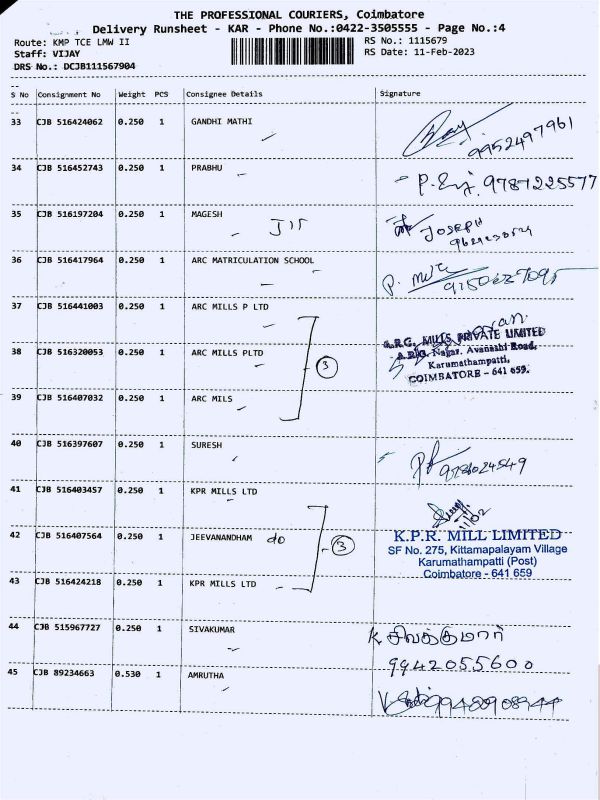 THE PROFESSIONAL COURIERS, Coimbatore
Delivery Runsheet - KAR - Phone No.:0422-3505555 - Page No.:4
Route: KMP TCE LMW II
RS No.: 1115679
Staff: VIJAY
RS Date: 11-Feb-2023
DRS No.: DCJB111567904
S No Consignment No Weight PCS Consignee Details Signature
33 CJB 516424062 0.250 1 GANDHI MATHI 9952497961
34 CJB 516452743 0.250 1 PRABHU 9787225577
35 CJB 516197204 0.250 1 MAGESH JOSEPH
36 CJB 516417964 0.250 1 ARC MATRICULATION SCHOOL
37 CJB 516441003 0.250 1 ARC MILLS P LTD
A.R.G. MILLS PRIVATE LIMITED
38 CJB 516320053 0.250 1 ARC MILLS PLTD 3 A.R.G. Nagar, Avanashi Road,
Karumathampatti,
COIMBATORE - 641 659.
39 CJB 516407032 0.250 1 ARC MILS
40 CJB 516397607 0.250 1 SURESH
41 CJB 516403457 0.250 1 KPR MILLS LTD
42 CJB 516407564 0.250 1 JEEVANANDHAM do 3 K.P.R. MILL LIMITED
SF No. 275, Kittamapalayam Village
Karumathampatti (Post)
Coimbatore - 641 659
43 CJB 516424218 0.250 1 KPR MILLS LTD
44 CJB 515967727 0.250 1 SIVAKUMAR K சிவக்குமார்
9942055600
45 CJB 89234663 0.530 1 AMRUTHA